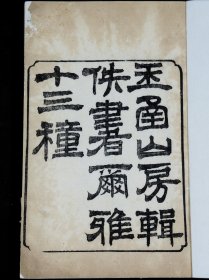 玉函山房輯
佚書爾雅
十三種